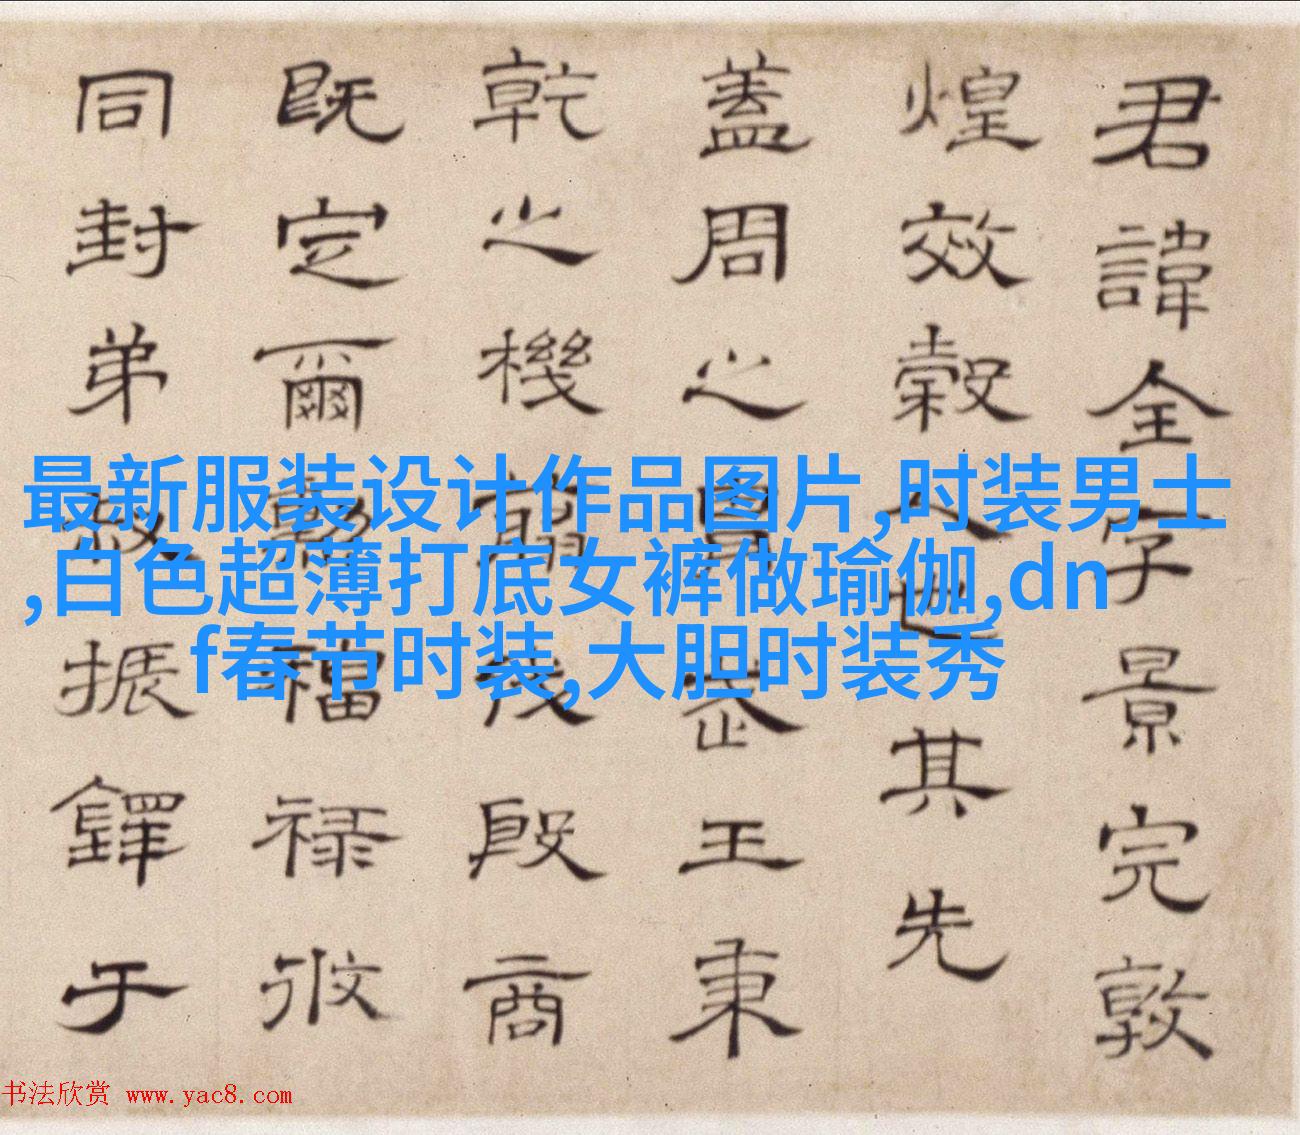 君諱全字景完敦
煌效穀人也其先
蓋周之胄武王秉
乾之機翦伐殷商
既定爾勳福祿攸
同封弟叔振鐸于
最新服装设计作品图片,时装男士
,白色超薄打底女裤做瑜伽,dn
f春节时装,大胆时装秀
书法欣赏 www.yac8.com